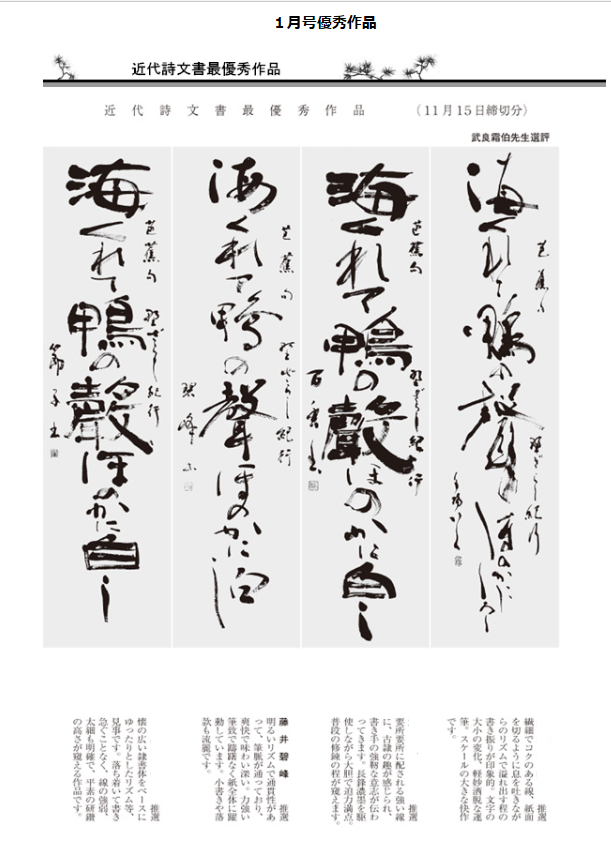 1月号優秀作品
近代詩文書最優秀作品
近代詩文書最優秀作品 (11月15日締切分)
武良霜伯先生選評
芭蕉句 野ざらし紀行
海くれて鴨の聲ほのかにしろし
芭蕉句 野ざらし紀行
海くれて鴨の聲ほのかに白し
芭蕉句 野ざらし紀行
海くれて鴨の聲ほのかに白し
碧峰
芭蕉句 野ざらし紀行
海くれて鴨の聲ほのかに白し
節子書
推選
繊細でコクのある線、紙面
を切るように息を吐きなが
らのリズムで溢れ出す程の
書き振りが印象的。文字の
大小の変化、軽妙洒脱な運
筆。スケールの大きな快作
です。
推選
要所要所に配される強い線
に、古隷の趣が感じられ、
書き手の強靭な意志が伝わ
ってきます。長鋒濃墨を駆
使しながら大胆で迫力満点。
普段の修錬の程が窺えます。
藤井碧峰 推選
明るいリズムで通貫性があ
って、筆脈が通っており、
爽快で味わい深い。力強い
筆致で躊躇なく紙全体に躍
動しています。小書きや落
款も流麗です。
推選
懐の広い隷書体をベースに
ゆったりとしたリズム等、
見事です。落ち着いて書き
急ぐことなく、線の強弱、
太細も明確で、平素の研鑽
の高さが窺える作品です。